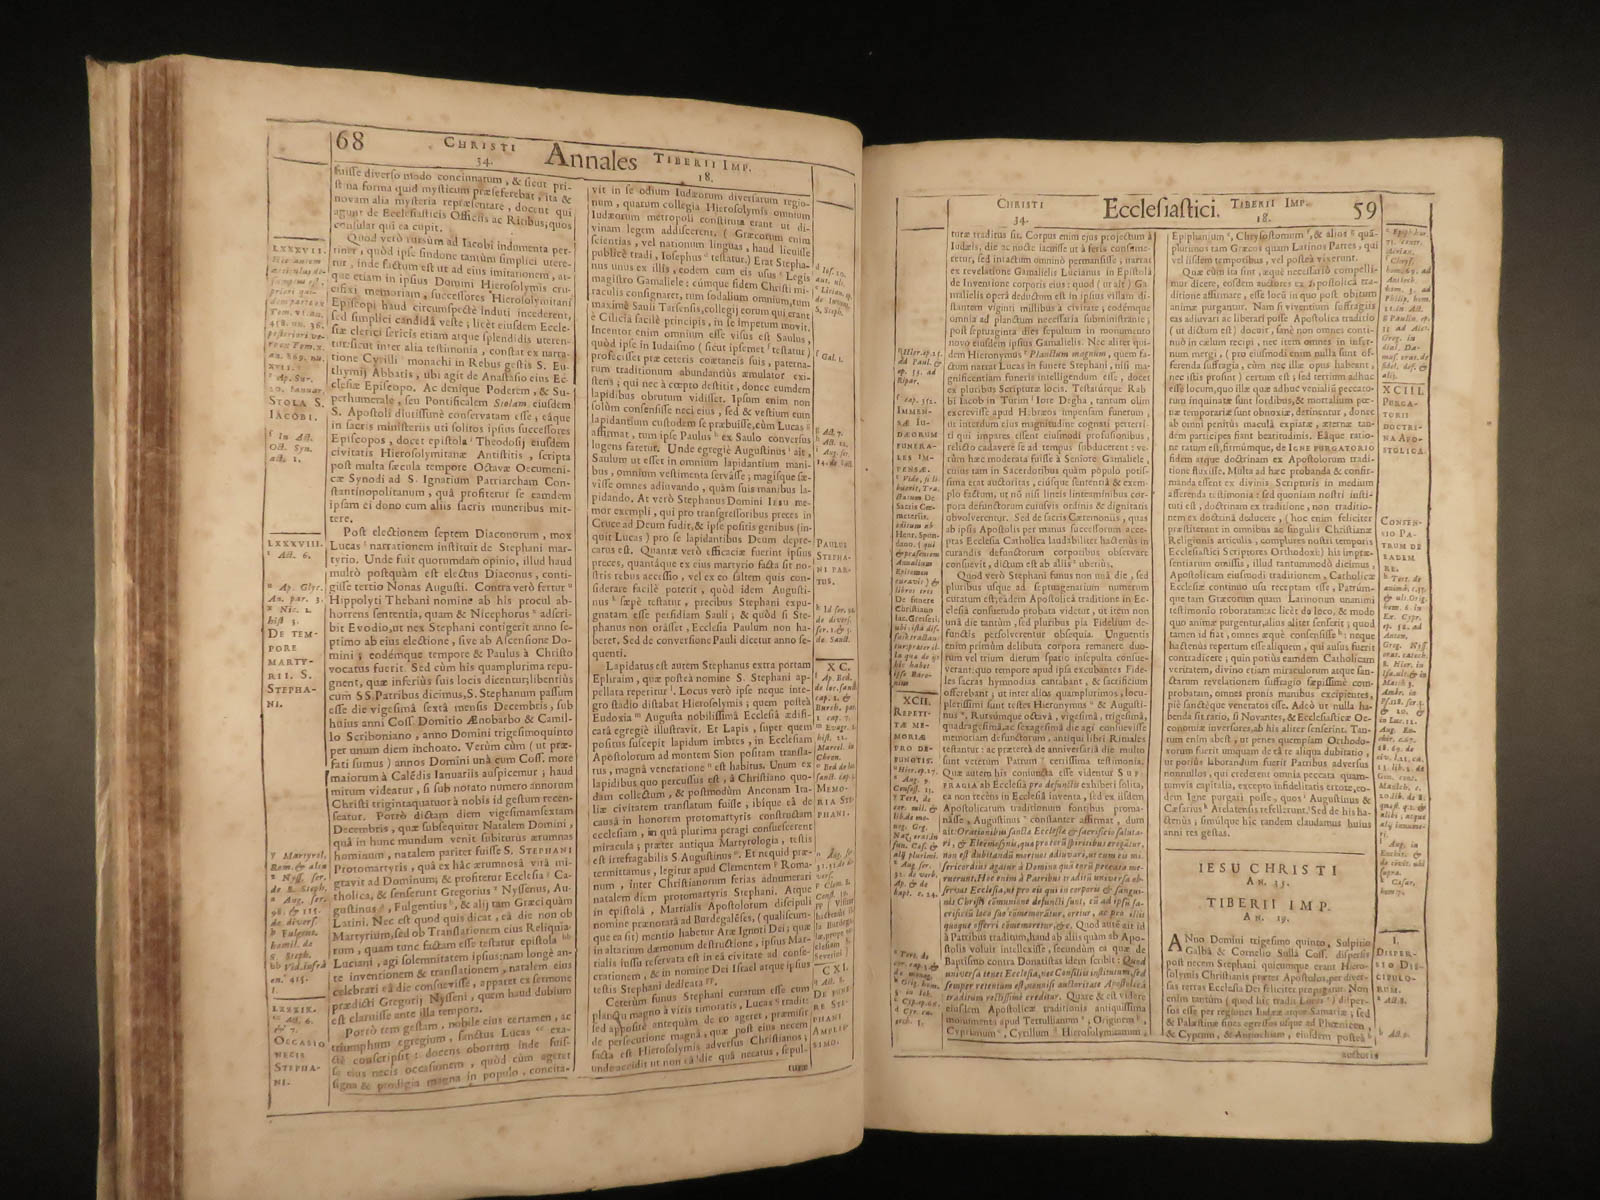 68
CHRISTI
34.
Annales
TIBERII IMP.
18.
fuisse diverso modo concinnatum, & sicut pri-
novam alia mysteria repræsentare, docent qui
agunt de Ecclesiasticis Officiis ac Ritibus, quos
consular qui ea cupit.
Quod verò rursùm ad Iacobi indumenta per-
tinet, quòd ipse sindone tantùm simplici utere-
tur, inde factum est ut ad eius imitationem, at-
que etiam in ipsius Domini Hierosolymis cru-
cifixi memoriam, successores Hierosolymitani
Episcopi haud circumspectè induti incederent,
sed simplici candidâ veste; licèt eiusdem Eccle-
siæ clerici sericis etiam atque splendidis uteren-
tur: sicut inter alia testimonia, constat ex narra-
tione Cyrilli monachi in Rebus gestis S. Eu-
thymij Abbatis, ubi agit de Anastasio eius Ec-
clesiæ Episcopo. Ac denique Poderem, & Su-
perhumerale, seu Pontificalem Stolam eiusdem
S. Apostoli diutissimè conservatam esse, eâque
in sacris ministeriis uti solitos ipsius successores
Episcopos, docet epistola Theodosij eiusdem
civitatis Hierosolymitanæ Antistitis, scripta
post multa sæcula tempore Octavæ Oecumeni-
cæ Synodi ad S. Ignatium Patriarcham Con-
stantinopolitanum, quâ profitetur se eamdem
ipsam ei dono cum aliis sacris muneribus mit-
tere.
Post electionem septem Diaconorum, mox
Lucas narrationem instituit de Stephani mar-
tyrio. Unde fuit quorumdam opinio, illud haud
multò postquàm est electus Diaconus, conti-
gisse tertio Nonas Augusti. Contra verò fertur
Hippolyti Thebani nomine ab his procul ab-
horrens sententia, quam & Nicephorus adscri-
bit Evodio, ut nex Stephani contigerit anno se-
ptimo ab eius electione, sive ab Ascensione Do-
mini; eodémque tempore & Paulus à Christo
vocatus fuerit. Sed cùm his quamplurima repu-
gnent, quæ inferiùs suis locis dicentur; libentiùs
cum SS. Patribus dicimus, S. Stephanum passum
esse die vigesimâ sextâ mensis Decembris, sub
huius anni Coss. Domitio Ænobarbo & Camil-
lo Scriboniano, anno Domini trigesimoquinto
per unum diem inchoato. Verùm cùm (ut præ-
fati sumus) annos Domini unà cum Coss. more
maiorum à Calēdis Ianuariis auspicemur; haud
mirum videatur, si sub notato numero annorum
Christi trigintaquatuor à nobis id gestum recen-
seatur. Porrò dictam diem vigesimamsextam
Decembris, quæ subsequitur Natalem Domini,
quâ in hunc mundum venit subiturus ærumnas
hominum, natalem pariter fuisse S. STEPHANI
Protomartyris, quâ ex hâc ærumnosâ vitâ mi-
gravit ad Dominum; & profitetur Ecclesia Ca-
tholica, & senserunt Gregorius Nyssenus, Au-
gustinus, Fulgentius, & alij tam Græci quàm
Latini. Nec est quod quis dicat, eâ die non ob
Martyrium, sed ob Translationem eius Reliquia-
rum, quam tunc factam esse testatur epistola
Luciani, agi solemnitatem ipsius: nam longè an-
te inventionem & translationem, natalem eius
celebrari eâ die consuevisse, apparet ex sermone
prædicti Gregorij Nysseni, quem haud dubium
est claruisse ante illa tempora.
Porrò rem gestam, nobile eius certamen, ac
triumphum egregium, sanctus Lucas exa-
ctè conscripsit: docens obortem inde fuis-
se eius necis occasionem, quòd cùm ageret
signa & prodigia magna in populo, concita-
LXXXVII.
STOLA S.
IACOBI.
In Act.
Oct. Syn.
act. 1.
LXXXVIII.
Act. 6.
DE TEM-
PORE
MARTY-
RII S.
STEPHA-
NI.
LXXXIX.
Act. 6.
& 7.
OCCASIO
NECIS
STEPHA-
NI.
vit in se odium Iudæorum diversarum regio-
num, quarum collegia Hierosolymis omnium
Iudæorum metropoli constituta erant ut di-
vinam legem addiscerent. (Græcorum enim
scientias, vel nationum linguas, haud licuisse
publicè tradi, Iosephus testatur.) Erat Stepha-
nus unus ex illis, eodem cum eis usus Legis
magistro Gamaliele: cúmque fidem Christi mi-
raculis consignaret, tum sodalium omnium, tum
maximè Sauli Tarsensis, collegij eorum qui erant
è Cilicia facilè principis, in se impetum movit.
Incentor enim omnium esse visus est Saulus,
quòd ipse in Iudaismo (sicut ipsemet testatur)
profecisset præ ceteris coætaneis suis, paterna-
rum traditionum abundantiùs æmulator exi-
stens; qui nec à cœpto destitit, donec eumdem
lapidibus obrutum vidisset. Ipsum enim non
solùm consensisse neci eius, sed & vestium eum
lapidantium custodem se præbuisse, cùm Lucas
affirmat, tum ipse Paulus ex Saulo conversus
lugens fatetur. Unde egregiè Augustinus ait,
Saulum ut esset in omnium lapidantium mani-
bus, omnium vestimenta servâsse; magisque sæ-
visse omnes adiuvando, quàm suis manibus la-
pidando. At verò Stephanus Domini IESU me-
mor exempli, qui pro transgressoribus preces in
Cruce ad Deum fudit, & ipse positis genibus (in-
quit Lucas) pro se lapidantibus Deum depre-
catus est. Quantæ verò efficaciæ fuerint ipsius
preces, quantáque ex eius martyrio facta sit no-
stris rebus accessio, vel ex eo saltem quis con-
siderare facilè poterit, quòd idem Augusti-
nus sæpè testatur, precibus Stephani expu-
gnatam esse persidiam Sauli; & quòd si Ste-
phanus non orâsset, Ecclesia Paulum non ha-
beret. Sed de conversione Pauli dicetur anno se-
quenti.
Lapidatus est autem Stephanus extra portam
Ephraim, quæ posteà nomine S. Stephani ap-
pellata reperitur. Locus verò ipse neque inte-
gro stadio distabat Hierosolymis; quem posteà
Eudoxia Augusta nobilissimâ Ecclesiâ ædifi-
catâ egregiè illustravit. Et Lapis, super quem
positus suscepit lapidum imbres, in Ecclesiam
Apostolorum ad montem Sion positam transla-
tus, magnâ veneratione est habitus. Unum ex
lapidibus quo percussus est, à Christiano quo-
dam collectum, & postmodùm Anconam Ita-
liæ civitatem translatum fuisse, ibíque eâ de
causâ in honorem protomartyris constructam
ecclesiam, in quâ plurima peragi consueverunt
miracula; præter antiqua Martyrologia, testis
est irrefragabilis S. Augustinus. Et nequid præ-
termittamus, legitur apud Clementem Roma-
num, inter Christianorum ferias adnumerari
natalem diem protomartyris Stephani. Atque
in epistolâ, Martialis Apostolorum discipuli
nomine prænotatâ ad Burdegalēses, (qualiscum-
que ea sit) mentio habetur Aræ Ignoti Dei; quæ
in altarium dæmonum destructione, ipsius Mar-
tialis iussu reservata est in eâ civitate ad conse-
crationem, & in nomine Dei Israel atque ipsius
testis Stephani dedicata.
Ceterùm funus Stephani curatum esse cum
planctu magno à viris timoratis, Lucas tradit:
sed appositè antequàm de eo ageret, præmisit
de persecutione magnâ, quæ post eius necem
facta est Hierosolymis adversùs Christianos;
unde accidit ut non eâ die quâ necatus, sepul-
turæ
Gal. 1.
Act. 7.
PAULUS
STEPHA-
NI PAR-
TUS.
XC.
MEMO-
RIA STE-
PHANI.
CXI.
DE FUNE-
RE STE-
PHANI
AMPLIS-
SIMO.
CHRISTI
34.
Ecclesiastici.
TIBERII IMP.
18.
59
turæ traditus sit. Corpus enim eius projectum à
Iudæis, die ac nocte iacuisse ut à feris consume-
retur, sed intactum omninò permansisse; narrat
ex revelatione Gamalielis Lucianus in Epistolâ
de Inventione corporis eius: quod (ut ait) Ga-
malielis operâ deductum est in ipsius villam di-
stantem viginti millibus à civitate; eodémque
omnia ad planctum necessaria subministrante;
post septuaginta dies sepultum in monumento
novo eiusdem ipsius Gamalielis. Nec aliter qui-
dem Hieronymus Planctum magnum, quem fa-
ctum narrat Lucas in funere Stephani, nisi ma-
gnificentiam funeris intelligendum esse, docet
ex pluribus Scripturæ locis. Testatúrque Rab
bi Iacob in Turim Iore Degha, tantum olim
excrevisse apud Hebræos impensam funerum,
ut interdum eius magnitudine cognati perterri-
ti qui impares essent eiusmodi profusionibus,
relicto cadavere se ad tempus subducerent: ve-
rùm hæc moderata fuisse à Seniore Gamaliele,
cuius tam in Sacerdotibus quàm populo potis-
sima erat auctoritas, eiúsque sententiâ & exem-
plo factum, ut nō nisi lineis linteaminibus cor-
pora defunctorum cuiusvis ordinis & dignitatis
obvolverentur. Sed de sacris Cæremoniis, quas
ab ipsis Apostolis per manus successorum acce-
ptas Ecclesia Catholica laudabiliter hactenùs in
curandis defunctorum corporibus observare
consuevit, dictum est ab aliis uberiùs.
Quòd verò Stephani funus non unâ die, sed
pluribus usque ad septuagenarium numerum
curatum est; eâdem Apostolicâ traditione in Ec-
clesiâ consuetudo probata videtur, ut item non
unâ die tantùm, sed pluribus pia Fidelium de-
functis persolverentur obsequia. Unguentis
enim primùm delibuta corpora remanere duo-
rum vel trium dierum spatio insepulta consue-
verant: quo tempore apud ipsa excubantes Fide-
les sacras hymnodias cantabant, & sacrificium
offerebant; ut inter alios quamplurimos, locu-
pletissimi sunt testes Hieronymus & Augusti-
nus. Rursúmque octavâ, vigesimâ, trigesimâ,
quadragesimâ, ac sexagesimâ die agi consuevisse
memoriam defunctorum, antiqui libri Rituales
testantur: ac prætereà de anniversariâ die multo
sunt veterum Patrum certissima testimonia.
Quæ autem his coniuncta esse videntur SUF-
FRAGIA ab Ecclesiâ pro defunctis exhiberi solita,
ea non recèns in Ecclesiâ inventa, sed ex iisdem
Apostolicarum traditionum fontibus proma-
nâsse, Augustinus constanter affirmat, dum
ait: Orationibus sanctæ Ecclesiæ & sacrificio saluta-
ri, & Eleemosynis, quæ pro eorū spiritibus erogātur,
non est dubitandū mortuos adiuvari, ut cum eis mi-
sericordiùs agatur à Domino quàm eorū peccata me-
ruerunt. Hoc enim à Patribus traditū universa ob-
servat Ecclesia, ut pro eis qui in corporis & sangui-
nis Christi cōmunione defuncti sunt, cū ad ipsū sa-
crificiū loco suo cōmemorātur, oretur, ac pro illis
quoque offerri cōmemoretur, &c. Quod autē ait id
à Patribus traditum, haud ab aliis quàm ab Apo-
stolis voluit intellexisse, secundùm ea quæ de
Baptismo contra Donatistas idem scribit: Quod
universa tenet Ecclesia, nec Conciliis institutum, sed
semper retentum est, nonnisi auctoritate Apostolicâ
traditum rectissimè creditur. Quare & est videre
eiusdem Apostolicæ traditionis antiquissima
monumenta apud Tertullianum, Origenem,
Cyprianum, Cyrillum Hierosolymitanum
IMMEN-
SÆ IU-
DÆORUM
FUNERA-
LES IM-
PENSÆ.
XCII.
REPETI-
TÆ ME-
MORIÆ
PRO DE-
FUNCTIS.
Epiphanium, Chrysostomum, & alios quā-
plurimos tam Græcos quàm Latinos Patres, qui
vel iisdem temporibus, vel posteà vixerunt.
Quæ cùm ita sint, æquè necessariò compelli-
mur dicere, eosdem auctores ex Apostolicâ tra-
ditione affirmare, esse locū in quo post obitum
animæ purgantur. Nam si viventium suffragiis
eas adiuvari ac liberari posse Apostolica traditio
(ut dictum est) docuit, sanè non omnes conti-
nuò in cœlum recipi, nec item omnes in infer-
num mergi, (pro eiusmodi enim nulla sunt of-
ferenda suffragia, cùm nec ille opus habeant,
nec istis prosint) certum est; sed tertium adhuc
esse locum, quo illæ quæ adhuc venialiū peccato-
rum inquinatæ sunt sordibus, & mortalium pœ-
næ temporariæ sunt obnoxiæ, detinentur, donec
ab omni penitùs maculâ expiatæ, æternæ tan-
dem participes fiant beatitudinis. Eáque ratio-
ne tutum est, firmúmque, de IGNE PURGATORIO
fidem atque doctrinam ex Apostolorum tradi-
tione fluxisse. Multa ad hæc probanda & confir-
manda essent ex divinis Scripturis in medium
afferenda testimonia: sed quoniam nostri insti-
tuti est, doctrinam ex traditione, non traditio-
nem ex doctrinâ deducere, (hoc enim feliciter
præstiterunt in omnibus ac singulis Christianæ
Religionis articulis, complures nostri temporis
Ecclesiastici Scriptores Orthodoxi;) his impræ-
sentiarùm omissis, illud tantummodò dicimus,
Apostolicam eiusmodi traditionem, Catholicæ
Ecclesiæ continuo usu receptam esse, Patrúm-
que tam Græcorum quàm Latinorum unanimi
testimonio roboratam: ac licèt de loco, & modo
quo animæ purgentur, alius aliter senserit; quod
tamen id fiat, omnes æquè consensisse: neque
hactenùs repertum esse aliquem, qui ausus fuerit
contradicere; quin potiùs eamdem Catholicam
veritatem, divino etiam miraculorum atque san-
ctarum revelationum suffragio sæpissimè com-
probatam, omnes pronis mentibus excipientes,
piè sanctéque veneratos esse. Adeò ut nulla ha-
benda sit ratio, si Novantes, & Ecclesiasticæ Oe-
conomiæ inversores, ab his aliter senserint. Tan-
tum enim abest, ut penes quempiam Orthodo-
xorum fuerit umquam de tâ re aliqua dubitatio,
ut potiùs laborandum fuerit Patribus adversùs
nonnullos, qui crederent omnia peccata quam-
tumvis capitalia, excepto infidelitatis errore, eo-
dem Igne purgari posse, quos Augustinus &
Cæsarius Arelatensis refellerunt. Sed de his ha-
ctenùs; simúlque hîc tandem claudamus huius
anni res gestas.
IESU CHRISTI
AN. 35.
TIBERII IMP.
AN. 19.
ANno Domini trigesimo quinto, Sulpitio
Galbâ & Cornelio Sullâ Coss. dispersis
post necem Stephani quicumque erant Hiero-
solymis Christianis præter Apostolos, per diver-
sas terras Ecclesia Dei feliciter propagatur. Non
enim tantùm (quod hîc tradit Lucas) disper-
sos esse per regiones Iudææ atque Samariæ; sed
& Palæstinæ fines egressos usque ad Phœnicen,
& Cyprum, & Antiochiam, eiusdem posteà
auctoris
XCIII.
PURGA-
TORII
DOCTRI-
NA APO-
STOLICA.
CONSEN-
SIO PA-
TRUM DE
EADEM
RE.
I.
DISPER-
SIO DIS-
CIPULO-
RUM.
Act. 8.